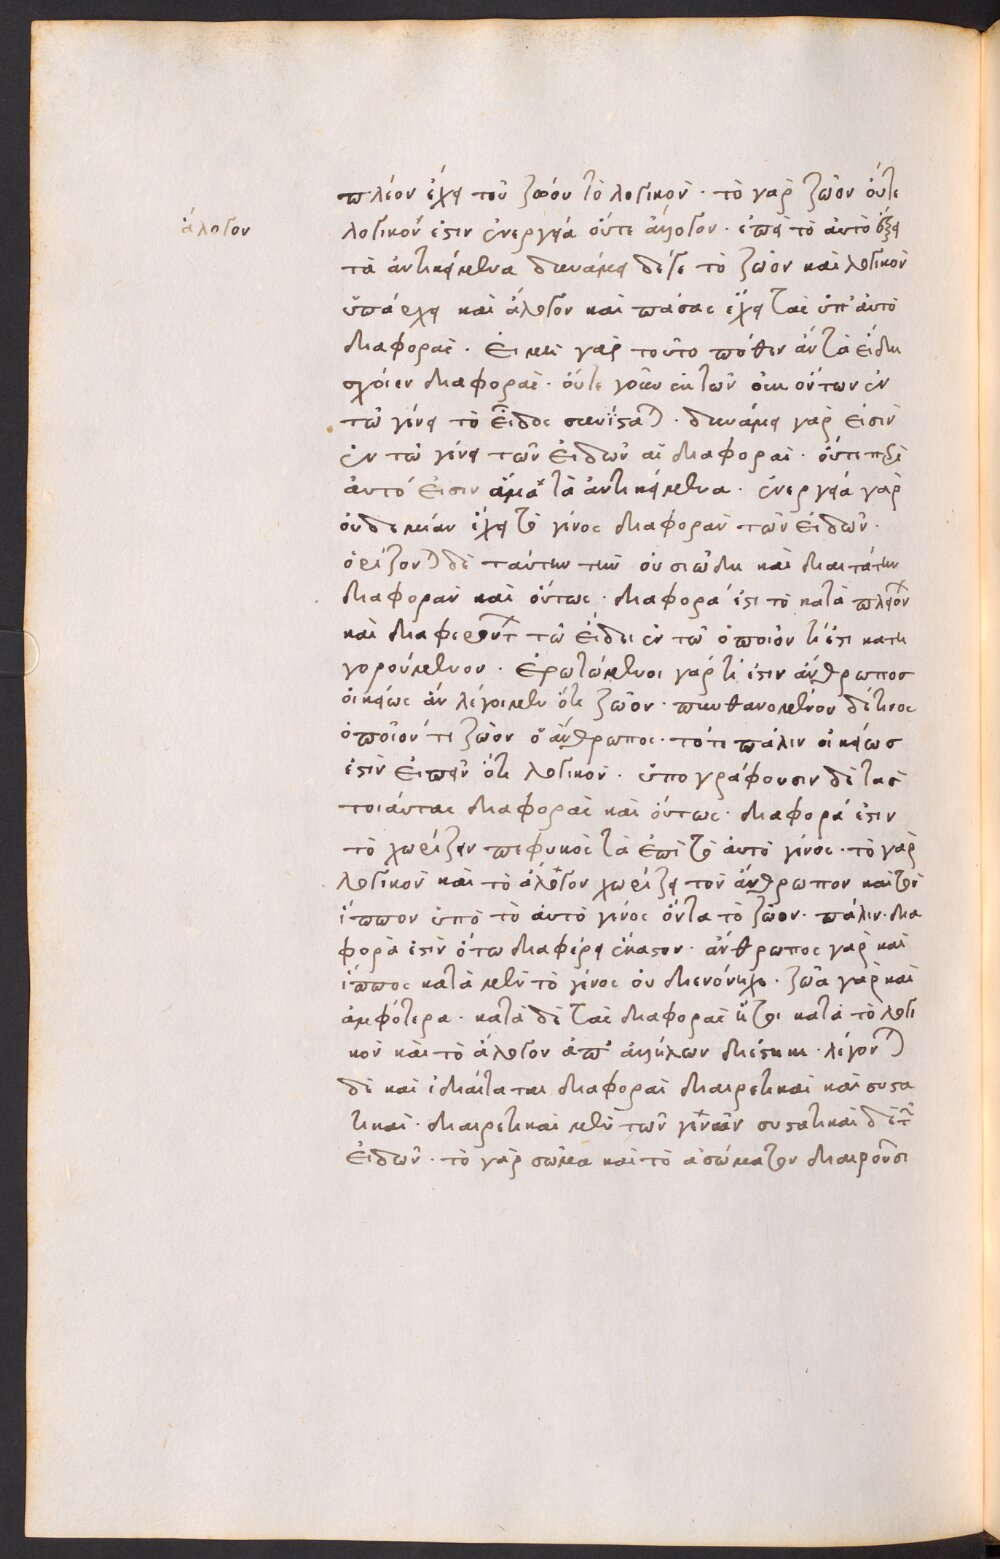 πλέον ἔχει τοῦ ζώου τὸ λογικόν· τὸ γὰρ ζῶον οὔτε
ἄλογον
λογικόν ἐστιν ἐνεργείᾳ οὔτε ἄλογον· ἐπεὶ τὸ αὐτὸ ἕξει
τὰ ἀντικείμενα δυνάμει δέ γε τὸ ζῶον καὶ λογικὸν
ὑπάρχει καὶ ἄλογον καὶ πάσας ἔχει τὰς ὑπ' αὐτὸ
διαφοράς· εἰ μὴ γὰρ τοῦτο πόθεν ἂν τὰ εἴδη
σχοῖεν διαφοράς· οὔτε γοῦν ἐκ τῶν οὐκ ὄντων ἐν
τῷ γένει τὸ εἶδος συνίσταται· δυνάμει γάρ εἰσιν
ἐν τῷ γένει τῶν εἰδῶν αἱ διαφοραί· οὔτε περὶ
αὐτό εἰσιν ἅμα τὰ ἀντικείμενα· ἐνεργείᾳ γὰρ
οὐδεμίαν ἔχει τὸ γένος διαφορὰν τῶν εἰδῶν·
ὁρίζονται δὲ ταύτην τὴν οὐσιώδη καὶ διαιτάτην
διαφορὰν καὶ οὕτως· διαφορά ἐστι τὸ κατὰ πλειόνων
καὶ διαφερόντων τῷ εἴδει ἐν τῷ ὁποῖόν τί ἐστι κατη
γορούμενον· ἐρωτώμενοι γὰρ τί ἐστιν ἄνθρωπος
οἰκείως ἂν λέγοιμεν ὅτι ζῶον· πυνθανομένου δέ τινος
ὁποῖόν τι ζῶον ὁ ἄνθρωπος· τότε πάλιν οἰκείως
ἐστὶν εἰπεῖν ὅτι λογικόν· ὑπογράφουσιν δὲ τὰς
τοιαύτας διαφορὰς καὶ οὕτως· διαφορά ἐστιν
τὸ χωρίζειν πεφυκὸς τὰ ἐπὶ τὸ αὐτὸ γένος· τὸ γὰρ
λογικὸν καὶ τὸ ἄλογον χωρίζει τὸν ἄνθρωπον καὶ τὸν
ἵππον ὑπὸ τὸ αὐτὸ γένος ὄντα τὸ ζῶον· πάλιν δια
φορά ἐστὶν ὅτω διαφέρει ἕκαστον· ἄνθρωπος γὰρ καὶ
ἵππος κατὰ μὲν τὸ γένος οὐ διενήνοχε· ζῶα γὰρ καὶ
ἀμφότερα· κατὰ δὲ τὰς διαφορὰς ἤτοι κατὰ τὸ λογι
κὸν καὶ τὸ ἄλογον ἀπ' ἀλλήλων διέστηκε· λέγονται
δὲ καὶ ἰδιαίταται διαφοραὶ διαιρετικαὶ καὶ συστα
τικαί· διαιρετικαὶ μὲν τῶν γενῶν συστατικαὶ δὲ τῶν
εἰδῶν· τὸ γὰρ σῶμα καὶ τὸ ἀσώματον διαιροῦσι